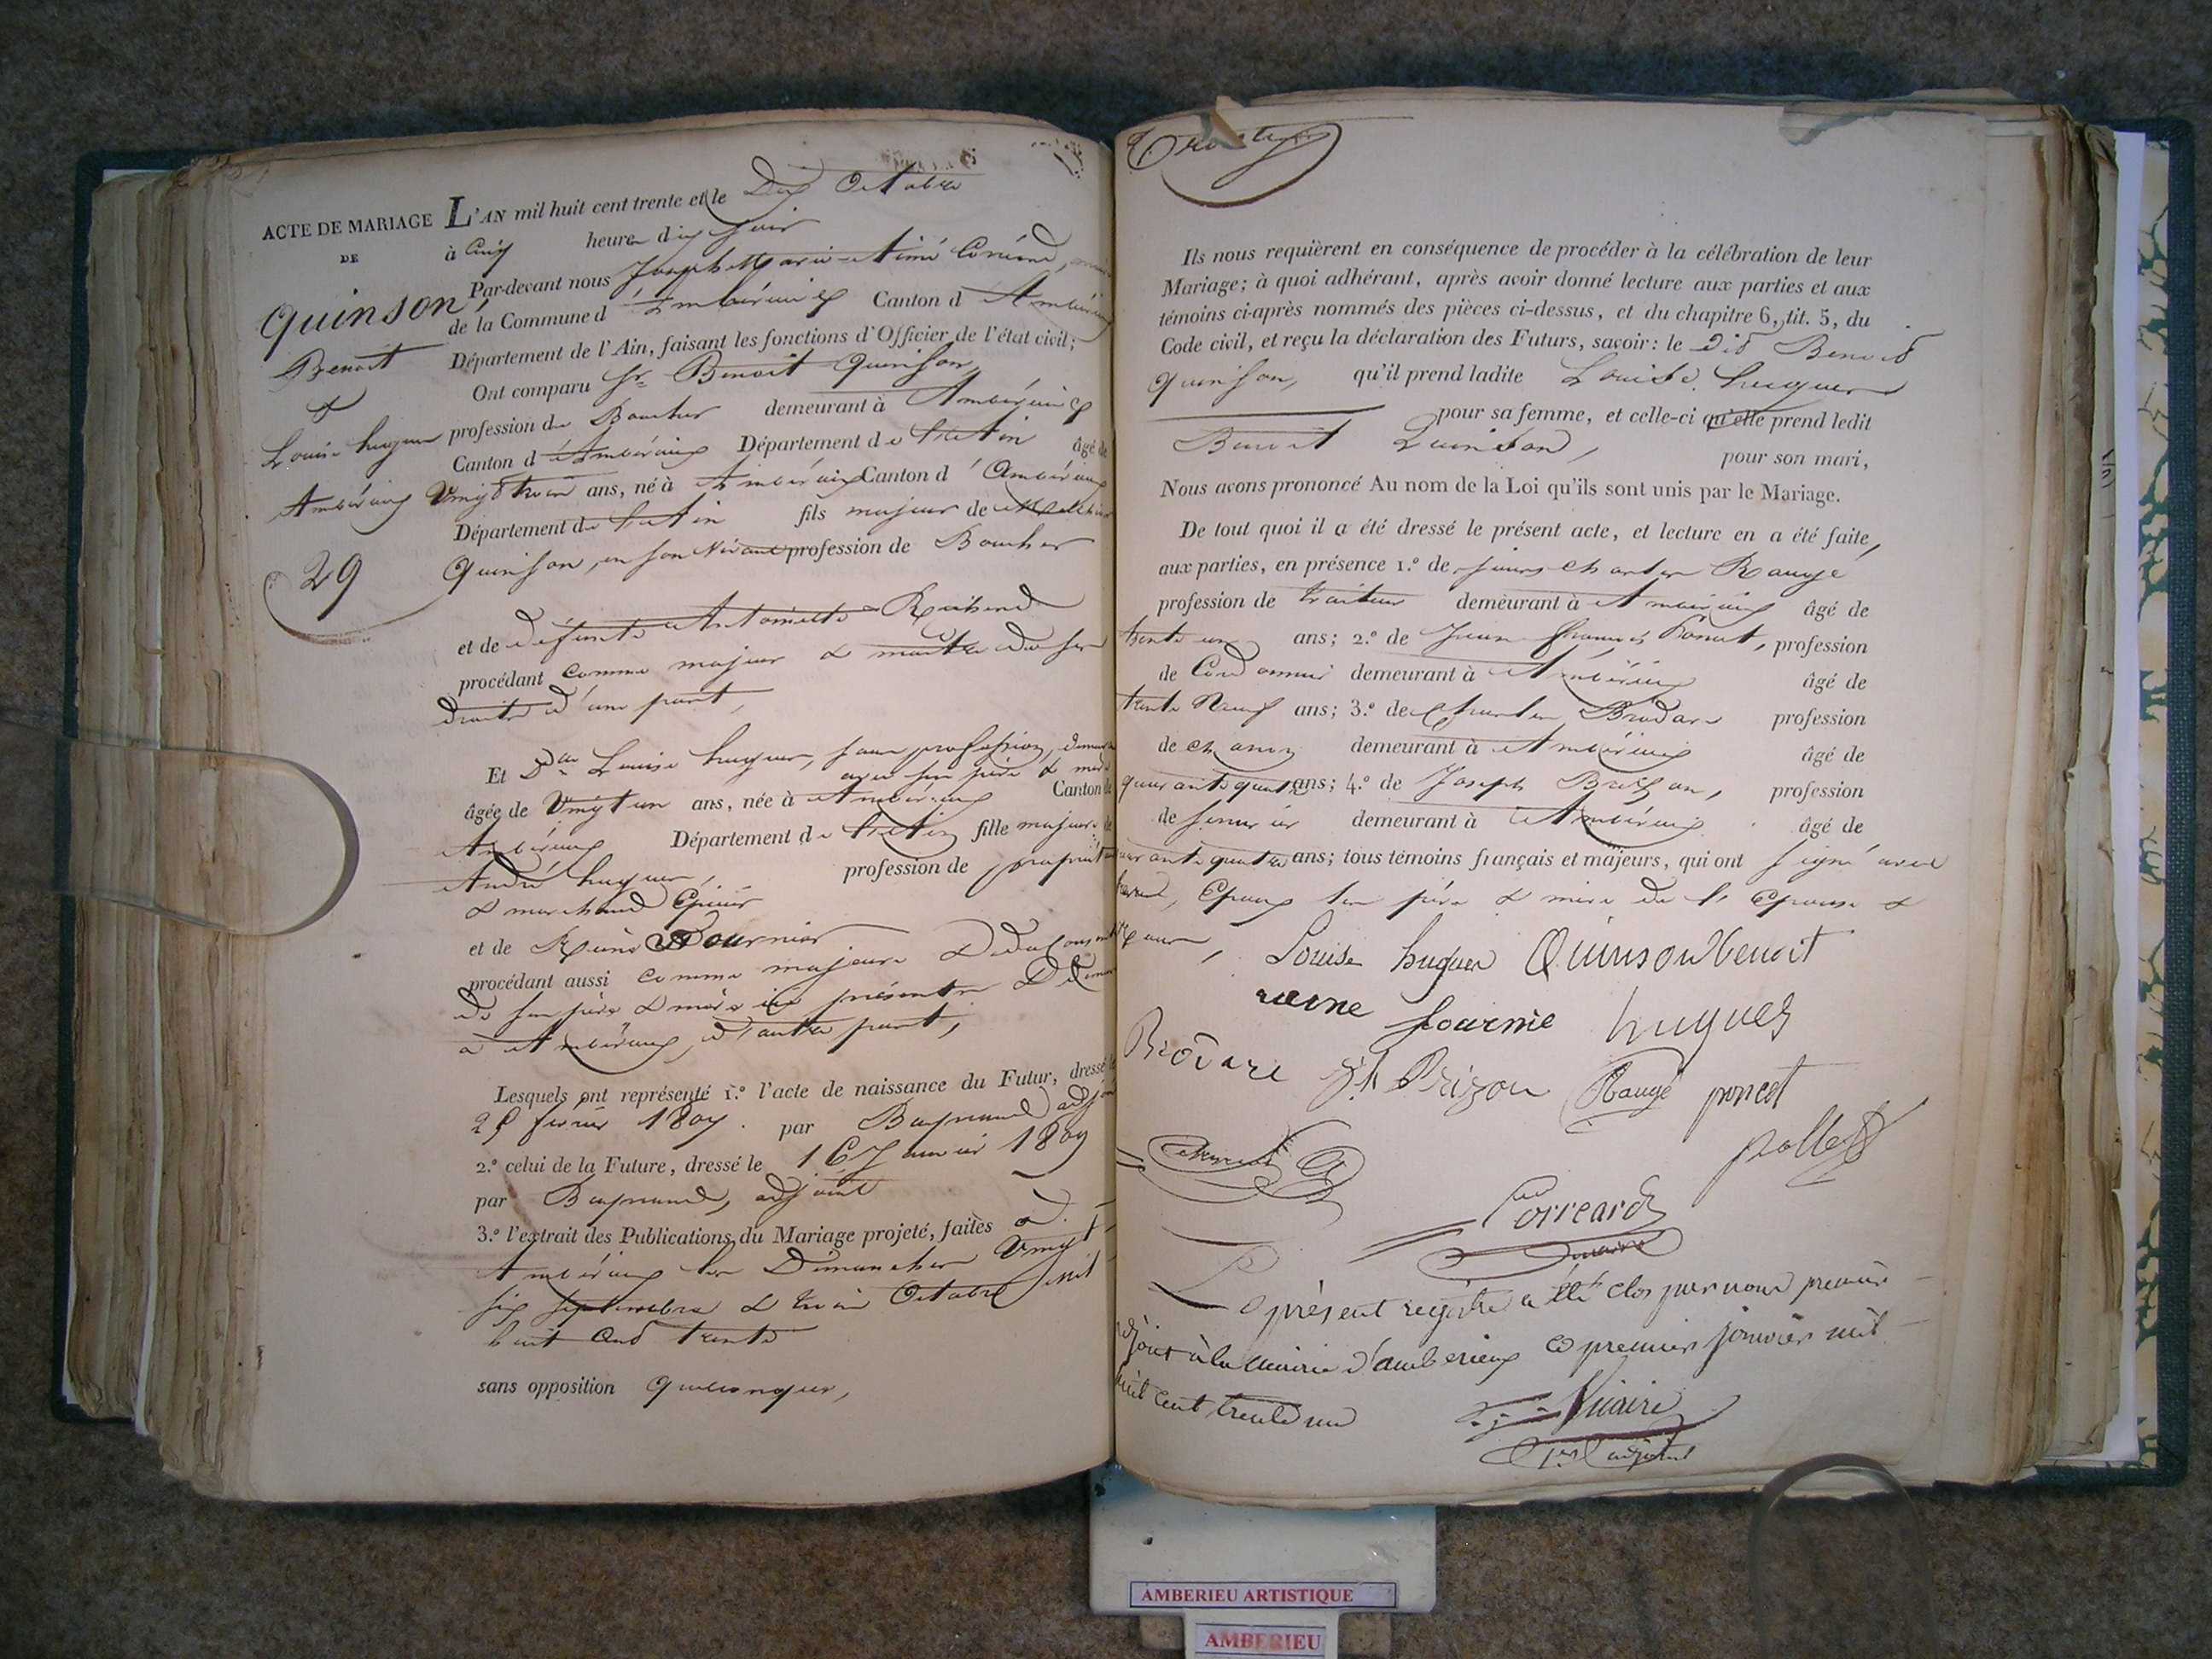 ACTE DE MARIAGE
DE
Quinson,
Benoit
&
Louise hugues
Ambérieux
29
L'AN mil huit cent trente et le Dix Octobre
à Cinq heures du Soir
Par-devant nous Joseph Marie Aimé Corréard,
de la Commune d'Ambérieux Canton d'Ambérieux
Département de l'Ain, faisant les fonctions d'Officier de l'état civil;
Ont comparu Sr. Benoit Quinson,
profession de Boucher demeurant à Ambérieux
Canton d'Ambérieux Département de l'Ain âgé de
Vingt trois ans, né à Ambérieux Canton d'Ambérieux
Département de l'Ain fils majeur de
Quinson, en son vivant profession de Boucher
et de défunte Antoinette
procédant comme majeur & maître de ses
droits d'une part,
Et Dlle Louise hugues, sans profession,
avec son père & mère
âgée de Vingt un ans, née à Ambérieux Canton de
Ambérieux Département de l'Ain fille majeure de
André hugues, profession de
& marchand Epicier
et de Reine Fournier
procédant aussi comme majeure & du
de son père & mère ici présents
à Ambérieux, d'autre part,
Lesquels ont représenté 1.º l'acte de naissance du Futur, dressé le
février 1807. par
2.º celui de la Future, dressé le 16 Janvier 1809
par adjoint
3.º l'extrait des Publications du Mariage projeté, faites à
Ambérieux les Dimanches Vingt
six septembre & trois Octobre mil
huit Cent trente
sans opposition quelconque,
Ils nous requièrent en conséquence de procéder à la célébration de leur
Mariage; à quoi adhérant, après avoir donné lecture aux parties et aux
témoins ci-après nommés des pièces ci-dessus, et du chapitre 6, tit. 5, du
Code civil, et reçu la déclaration des Futurs, savoir: le dit Benoit
Quinson, qu'il prend ladite Louise hugues
pour sa femme, et celle-ci qu'elle prend ledit
Benoit Quinson, pour son mari,
Nous avons prononcé Au nom de la Loi qu'ils sont unis par le Mariage.
De tout quoi il a été dressé le présent acte, et lecture en a été faite
aux parties, en présence 1.º de Charles Raugé
profession de traiteur demeurant à Ambérieux âgé de
trente un ans; 2.º de Jean François Poncet, profession
de Cordonnier demeurant à Ambérieux âgé de
trente Neuf ans; 3.º de Charles Brodare profession
de demeurant à Ambérieux âgé de
quarante quatre ans; 4.º de Joseph Brizon, profession
de demeurant à Ambérieux âgé de
quarante quatre ans; tous témoins français et majeurs, qui ont signé avec
Epoux les père & mère de l'Epouse &
Louise hugues Quinson benoit
reine fournie hugues
Brodare Brizon Raugé poncet
Corréard
maire
Le présent registre a été clos par nous premier
adjoint à la mairie d'amberieux ce premier janvier mil
huit cent trente un
1er adjoint
AMBERIEU ARTISTIQUE
AMBERIEU